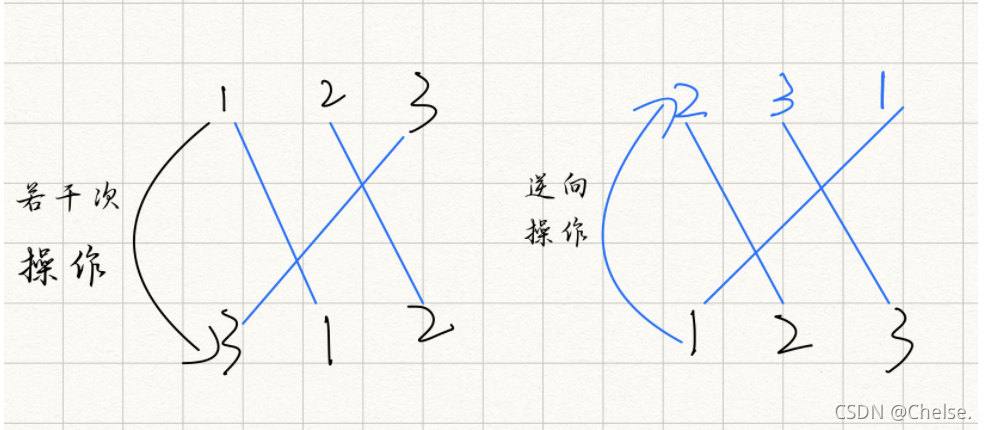 1 2 3
若干次
操作
3 1 2
2 3 1
逆向
操作
1 2 3
CSDN @Chelse.